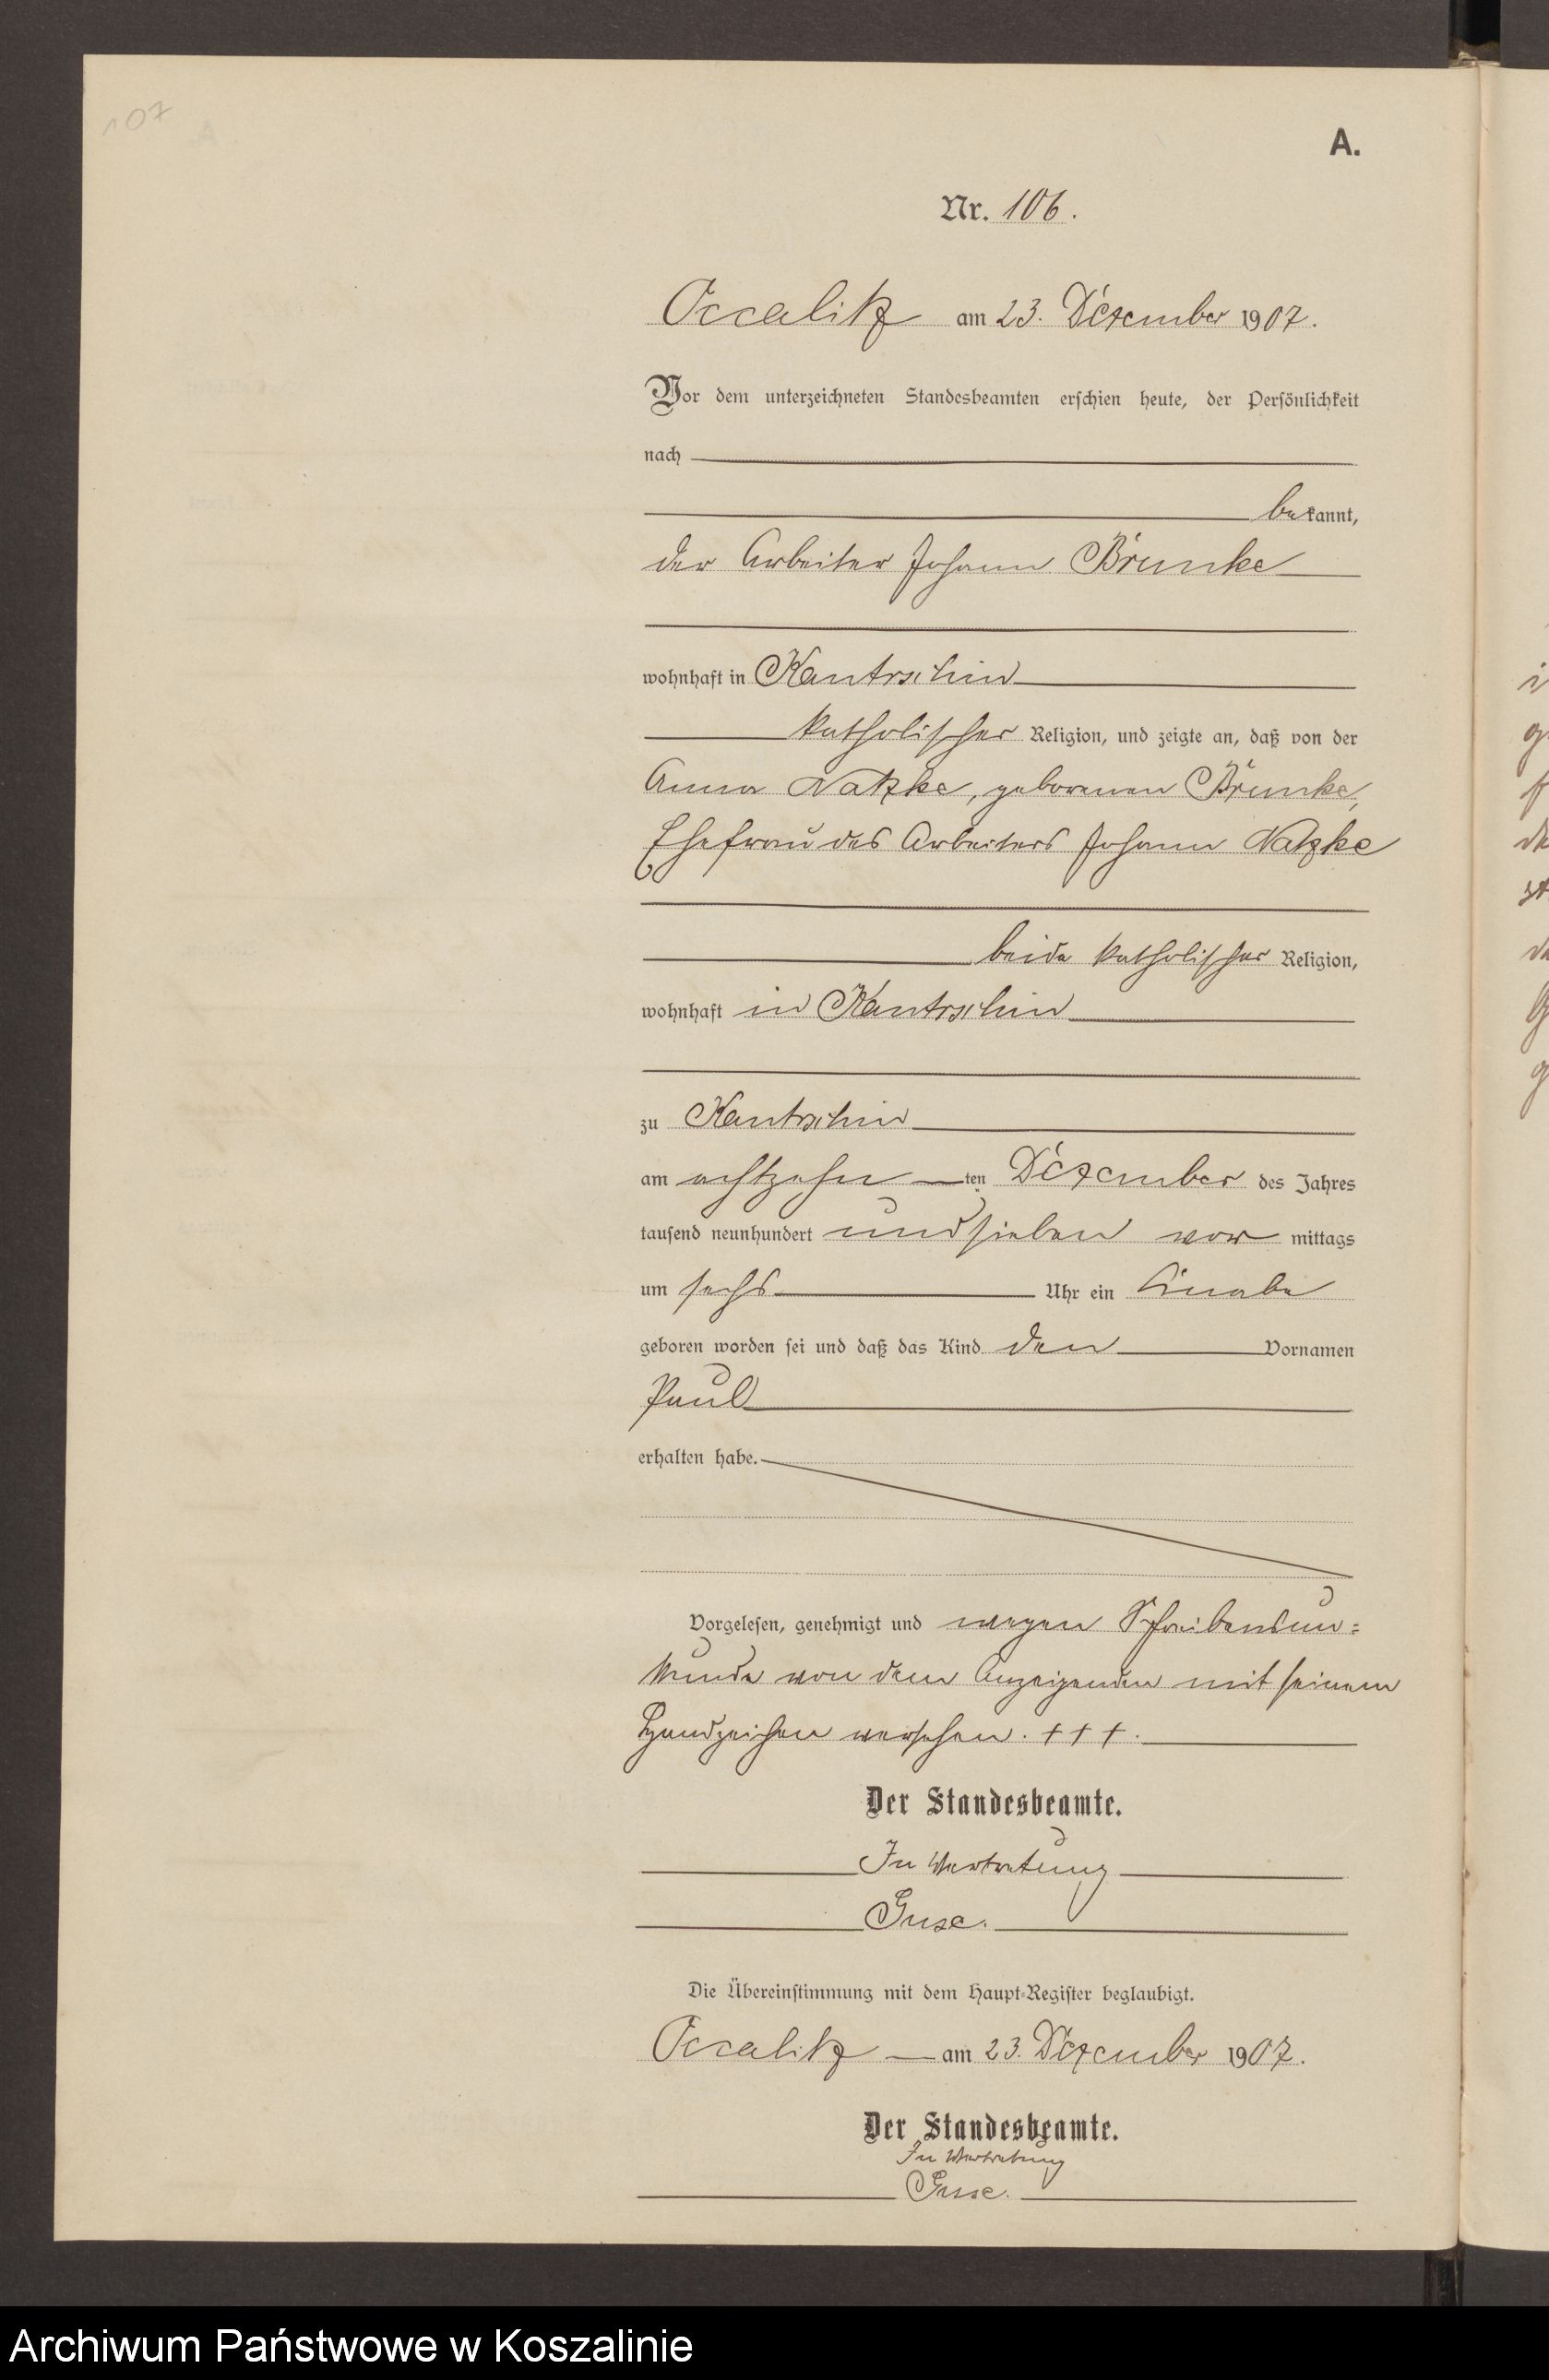 107
A.
Nr. 106.
Occalitz am 23. Dezember 1907.
Vor dem unterzeichneten Standesbeamten erschien heute, der Persönlichkeit
nach
bekannt,
der Arbeiter Johann Brunke
wohnhaft in Kantrschin
katholischer Religion, und zeigte an, daß von der
Anna Natzke, geborenen Brunke,
Ehefrau des Arbeiters Johann Natzke
beide katholischer Religion,
wohnhaft in Kantrschin
zu Kantrschin
am achtzehn ten Dezember des Jahres
tausend neunhundert und sieben vor mittags
um sechs Uhr ein Knabe
geboren worden sei und daß das Kind den Vornamen
Paul
erhalten habe.
Vorgelesen, genehmigt und wegen Schreibensun=
kunde von dem Anzeigenden mit seinem
Handzeichen versehen. + + +.
Der Standesbeamte.
In Vertretung
Guse.
Die Übereinstimmung mit dem Haupt-Register beglaubigt.
Occalitz am 23. Dezember 1907.
Der Standesbeamte.
In Vertretung
Guse.
Archiwum Państwowe w Koszalinie